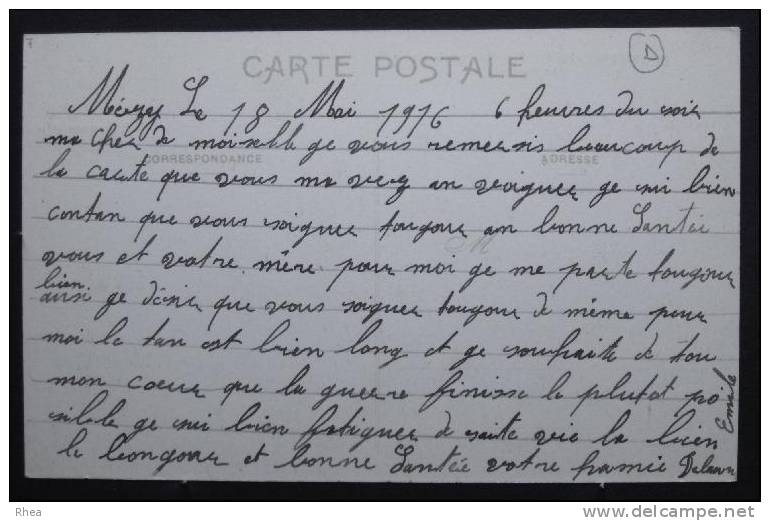 D
CARTE POSTALE
Mézy Le 18 Mai 1916 6 heures du soir
ma cher de moiselle ge vous remersis beaucoup de
CORRESPONDANCE ADRESSE
la carte que vous ma vez an voiguer ge sui bien
contan que vous soiguer tougour an bonne Santée
vous et votre mère pour moi ge me parte tougour
bien
ausi ge désir que vous soiguer tougour de même pour
moi le tan est bien long et ge souhaite de tou
mon coeur que la guerre finisse le plutot po
sible ge sui bien fatiguer de saite vie la bien
le bongour et bonne Santée votre hamie
Emile
Rhea
www.delcampe.net